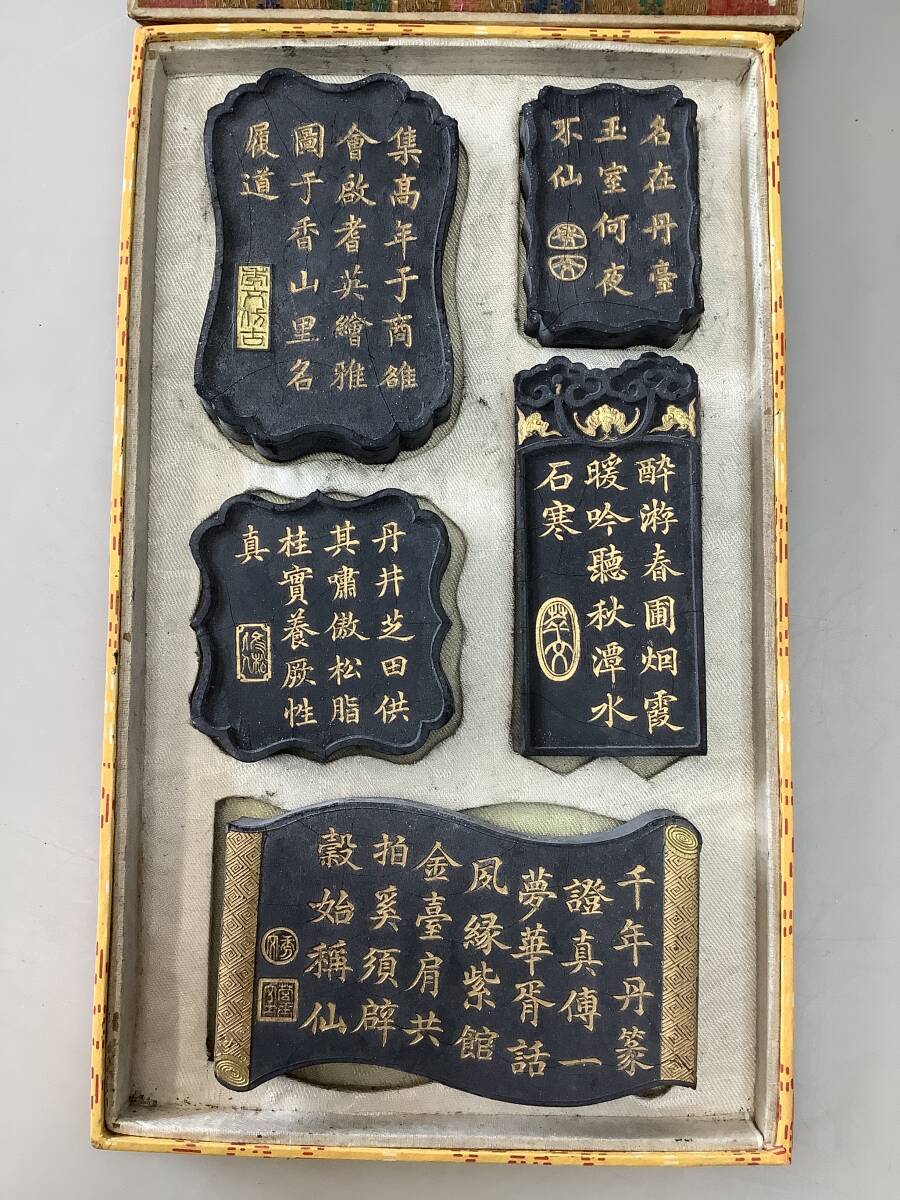 集高年于商雒
會啟耆英繪雅
圖于香山里名
履道
名在丹臺
玉室何夜
不仙
丹井芝田供
其嘯傲松脂
桂實養厥性
真
醉游春圃烟霞
暖吟聽秋潭水
石寒
萃文
千年丹篆
證真傳一
夢華胥話
夙緣紫館
金臺肩共
拍奚須辟
穀始稱仙